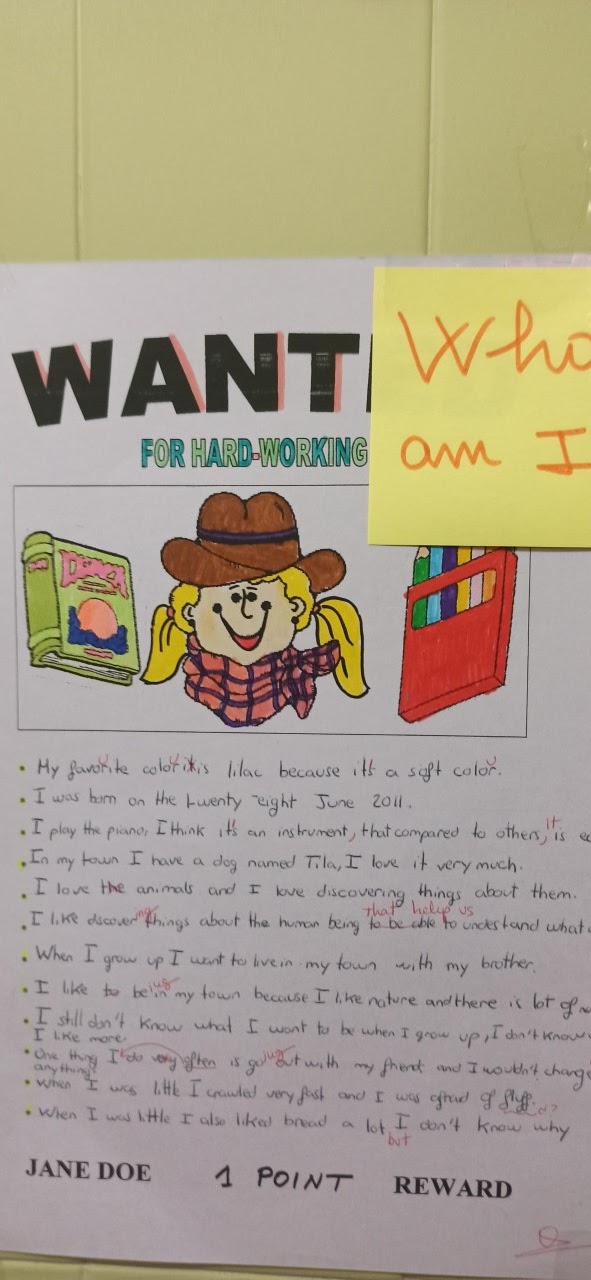 WANT
Who
am I
FOR HARD-WORKING
My favorite color is lilac because it's a soft color.
I was born on the twenty-eight June 2011.
I play the piano, I think it's an instrument, that compared to others, it is
In my town I have a dog named Tila, I love it very much.
I love the animals and I love discovering things about them.
that helps us
I like discovering things about the human being to be able to understand what
When I grow up I want to live in my town with my brother.
I like to being in my town because I like nature and there is lot of
I still don't know what I want to be when I grow up, I don't know
I like more.
One thing I do very often is going out with my friend and I wouldn't change
anything.
When I was little I crawled very fast and I was afraid of fluff.
When I was little I also liked bread a lot I don't know why
but
JANE DOE 1 POINT REWARD